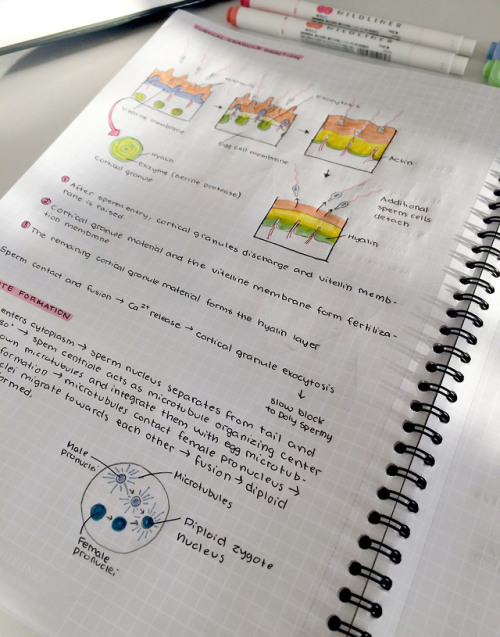 MILDLINER
MILDLINER
CORTICAL GRANULE REACTION
Exocytosis
Vitelline membrane
Egg cell membrane
Actin
Hyalin
Enzyme (serine protease)
Cortical granule
Additional
sperm cells
detach
Hyalin
① After sperm entry, cortical granules discharge and vitellin memb-
rane is raised
② Cortical granule material and the vitelline membrane form fertiliza-
tion membrane
③ The remaining cortical granule material forms the hyalin layer
Sperm contact and fusion → Ca²⁺ release → cortical granule exocytosis
↓
Slow block
to poly spermy
TE FORMATION
enters cytoplasm → sperm nucleus separates from tail and
80° → sperm centriole acts as microtubule organizing center
own microtubules and integrate them with egg microtub-
formation → microtubules contact female pronucleus →
clei migrate towards each other → fusion → diploid
ormed.
Male
pronuclei
Microtubules
Female
pronuclei
Diploid zygote
nucleus